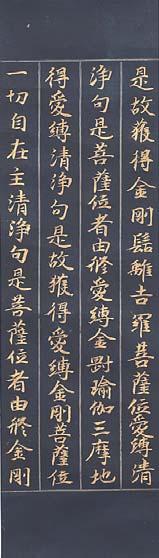 是故獲得金剛髻離吉羅菩薩位愛縛清
淨句是菩薩位者由修愛縛金剛瑜伽三摩地
得愛縛清淨句是故獲得愛縛金剛菩薩位
一切自在主清淨句是菩薩位者由修金剛